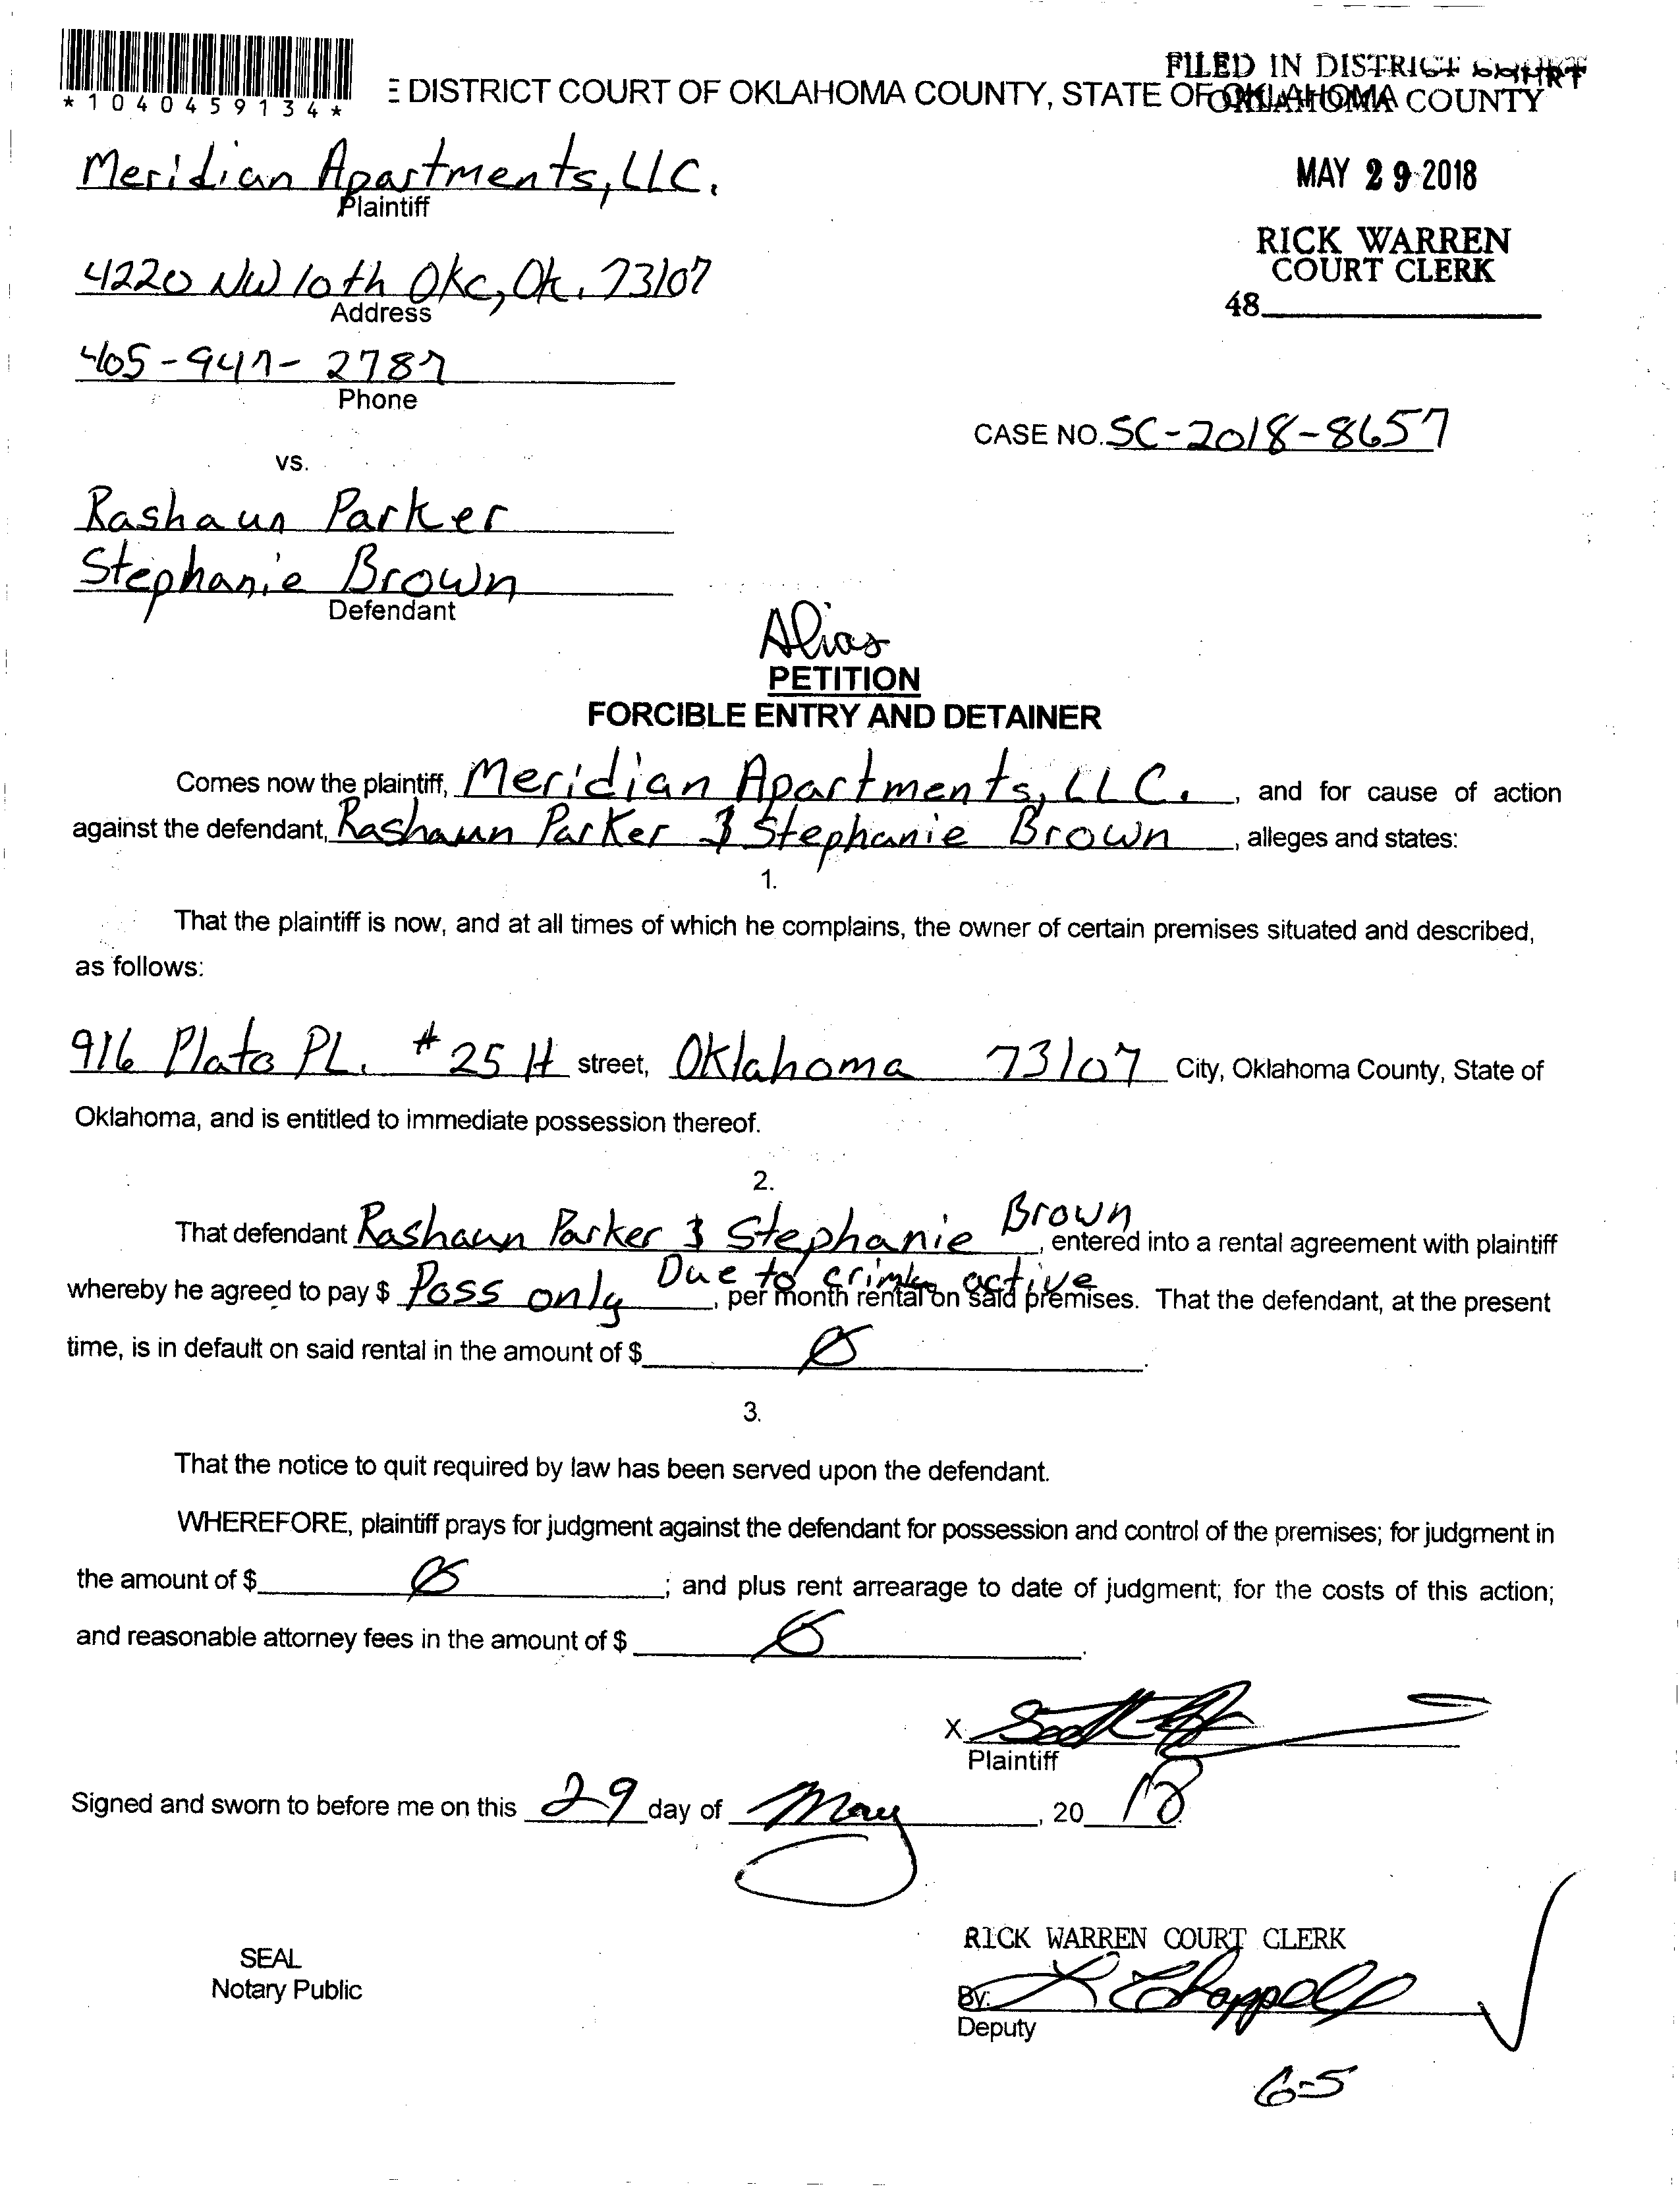 *1040459134*
E DISTRICT COURT OF OKLAHOMA COUNTY, STATE OF OKLAHOMA
FILED IN DISTRICT COURT
OKLAHOMA COUNTY
Meridian Apartments, LLC.
Plaintiff
MAY 29 2018
RICK WARREN
COURT CLERK
48
4220 NW 10th Okc, Ok. 73107
Address
405-947-2787
Phone
CASE NO. SC-2018-8657
vs.
Rashaun Parker
Stephanie Brown
Defendant
Alias
PETITION
FORCIBLE ENTRY AND DETAINER
Comes now the plaintiff, Meridian Apartments, LLC. , and for cause of action
against the defendant, Rashaun Parker & Stephanie Brown , alleges and states:
1.
That the plaintiff is now, and at all times of which he complains, the owner of certain premises situated and described,
as follows:
916 Plato PL. #25 H street, Oklahoma 73107 City, Oklahoma County, State of
Oklahoma, and is entitled to immediate possession thereof.
2.
That defendant Rashaun Parker & Stephanie Brown , entered into a rental agreement with plaintiff
whereby he agreed to pay $ Poss only Due to active , per month rental on said premises. That the defendant, at the present
time, is in default on said rental in the amount of $ Ø .
3.
That the notice to quit required by law has been served upon the defendant.
WHEREFORE, plaintiff prays for judgment against the defendant for possession and control of the premises; for judgment in
the amount of $ Ø ; and plus rent arrearage to date of judgment; for the costs of this action;
and reasonable attorney fees in the amount of $ Ø .
X
Plaintiff
Signed and sworn to before me on this 29 day of May , 20 18
RICK WARREN COURT CLERK
SEAL
Notary Public
By: Chappell
Deputy
6-5